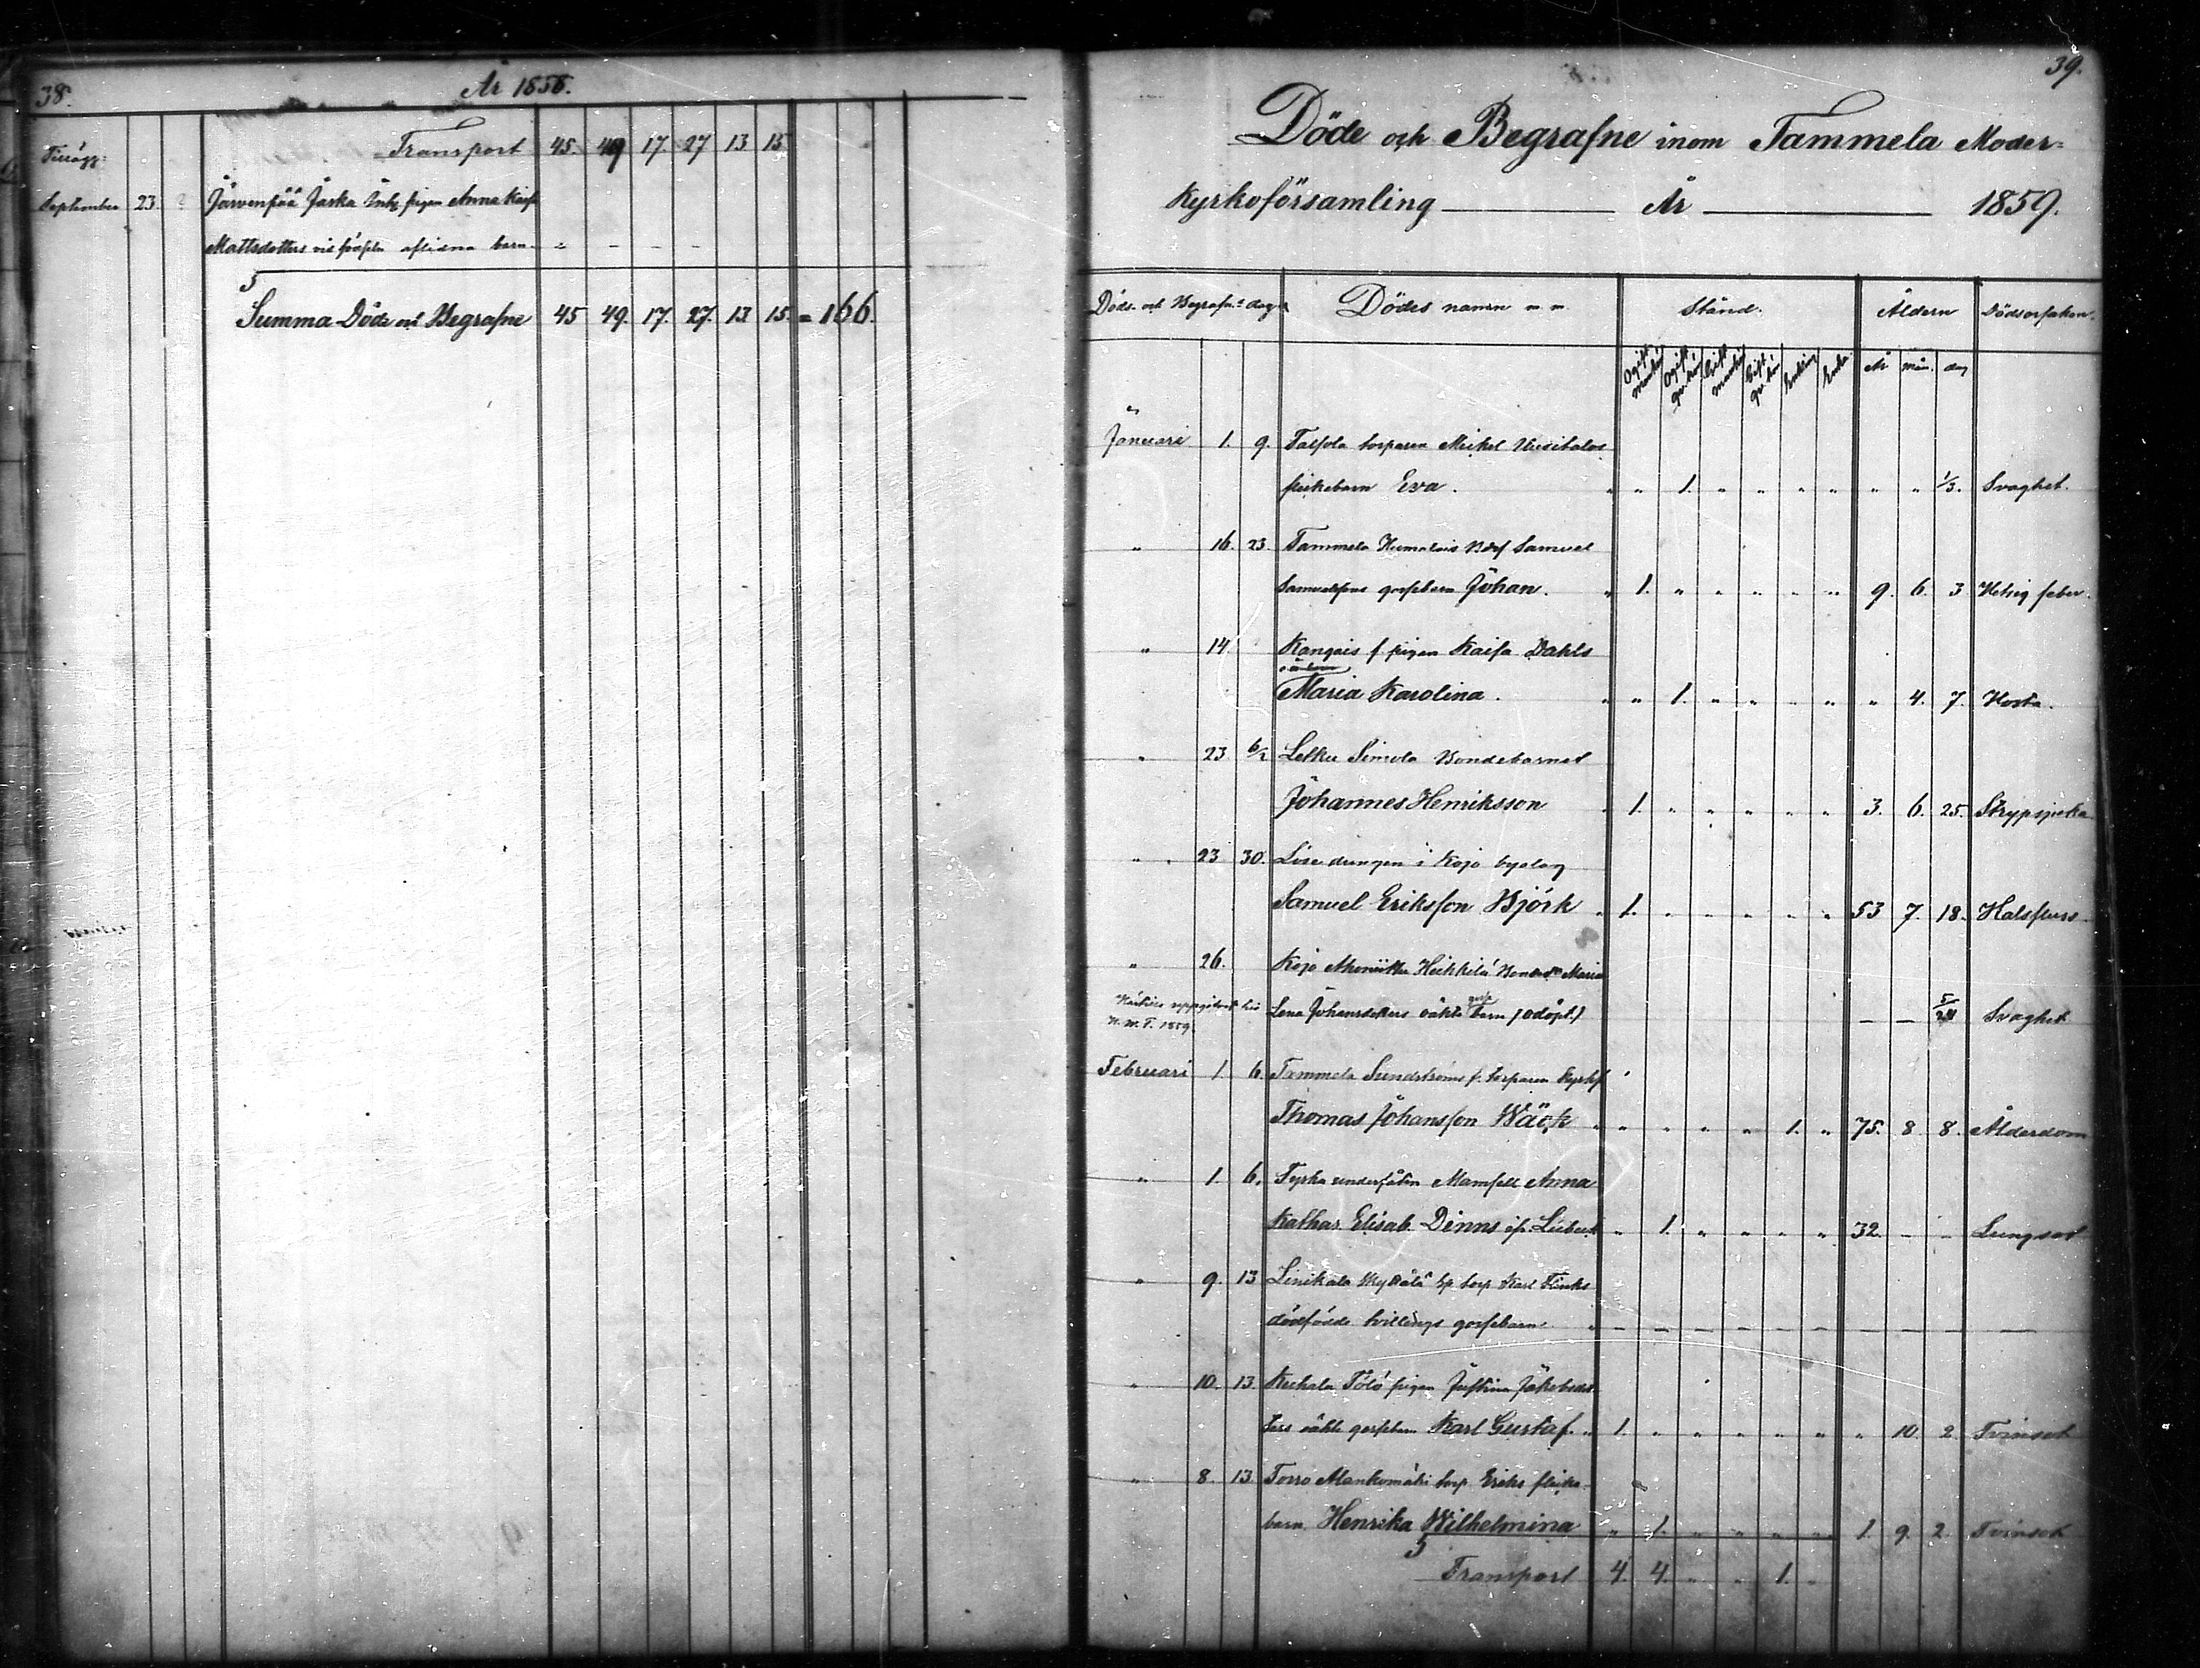 38.
År 1858.
Transport 45. 49 17. 27 13 15
Tillägg:
September 23. Järvenpää Jaska Inh. pigan Anna Kaisa
Mattsdotters vid födseln aflidna barn " - - - -
Summa Döde och Begrafne 45 49. 17. 27. 13 15. = 166.
39.
Döde och Begrafne inom Tammela Moder-
kyrkoförsamling År 1859.
Döds. och Begrafn:s dag Dödes namn Stånd. Åldern Dödsorsaken.
Ogift mankön Ogift qvinkön Gift mankön Gift qvinkön Enkling Enka År mån. dag
Januari 1. 9. Talpola torparen Mickel Uusitalos
flickebarn Eva. " " 1. " " " " " " 1/3. Svaghet.
" 16. 23. Tammela Humalais Bdsf Samuel
Samuelssons gossebarn Johan. " 1. " " " " " 9. 6. 3 Hetsig feber.
" 14 Kangais f. pigan Kaisa Dahls
Maria Karolina. " " 1. " " " " " 4. 7. Hosta.
" 23 6/2 Letku Simola Bondebarnet
Johannes Henriksson " 1. " " " " " 3. 6. 25. Strypsjuka
" 23 30. Lösedrengen i Kojo bolag
Samuel Eriksson Björk " 1. " " " " " 53 7. 18. Halsfluss.
" 26. Kojo Heikkilä Maria
uppgifvet
1859. Lena Johansdotters oäkta gosse barn (odöpt.) — — 5/24 Svaghet
Februari 1 6. Tammela Sundströms f. torparen Kyrkf
Thomas Johansson Wäck " " " " " 1. " 75. 8 8. Ålderdom
" 1. 6. Tyska undersåten Mamsell Anna
Kathar. Elisab. Dinns ifr. Lübeck " 1. " " " " 32. - - Lungsot
" 9. 13 Linikala torp Karl Flinks
dödfödde tvillings gossebarn. " — — — — — — — — — —
" 10. 13. Kuhala Tölö pigan Justina Jakobsdot
ters oäkta gossebarn Karl Gustaf. " 1. " " " " " " 10. 2. Tvinsot
" 8. 13. Torro Mankomäki torp. Eriks flicke-
barn Henrika Wilhelmina " 1. " " " " 1. 9. 2. Tvinsot
Transport 4. 4. " " 1. "